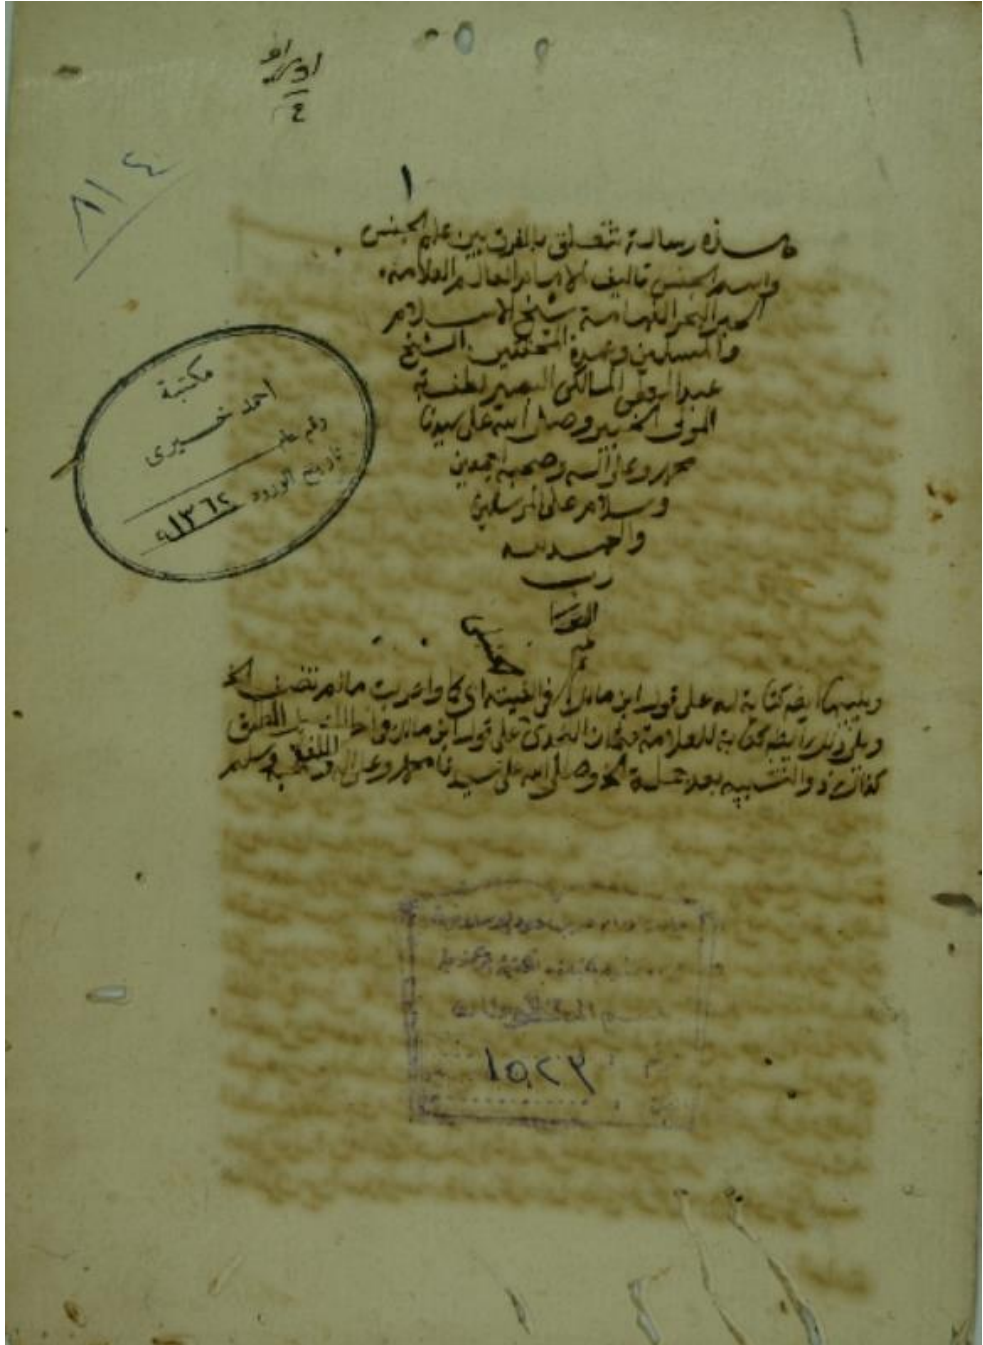 ٨١٤
١
هذه رسالة تتعلق بالفرق بين علم الجنس
واسم الجنس تاليف الامام العالم العلامة
الحبر البحر الفهامة شيخ الاسلام
والمسلمين وعمدة المحققين الشيخ
المالكى البصير لطف به
المولى الخبير وصلى الله على سيدنا
محمد وعلى اله وصحبه اجمعين
وسلام على المرسلين
والحمد لله
رب
مكتبة
احمد خيرى
رقم
تاريخ الورود ١٣٦٢
ويليها ايضا كتابة له على قول ابن مالك فى الفيته اى كما واعربت مالم تضف الخ
ويلى ذلك ايضا كتابة للعلامة النجدى على قول ابن مالك
والتشبيه بعد جملة الخ وصلى الله على سيدنا محمد وعلى اله وصحبه وسلم
١٥٢٣